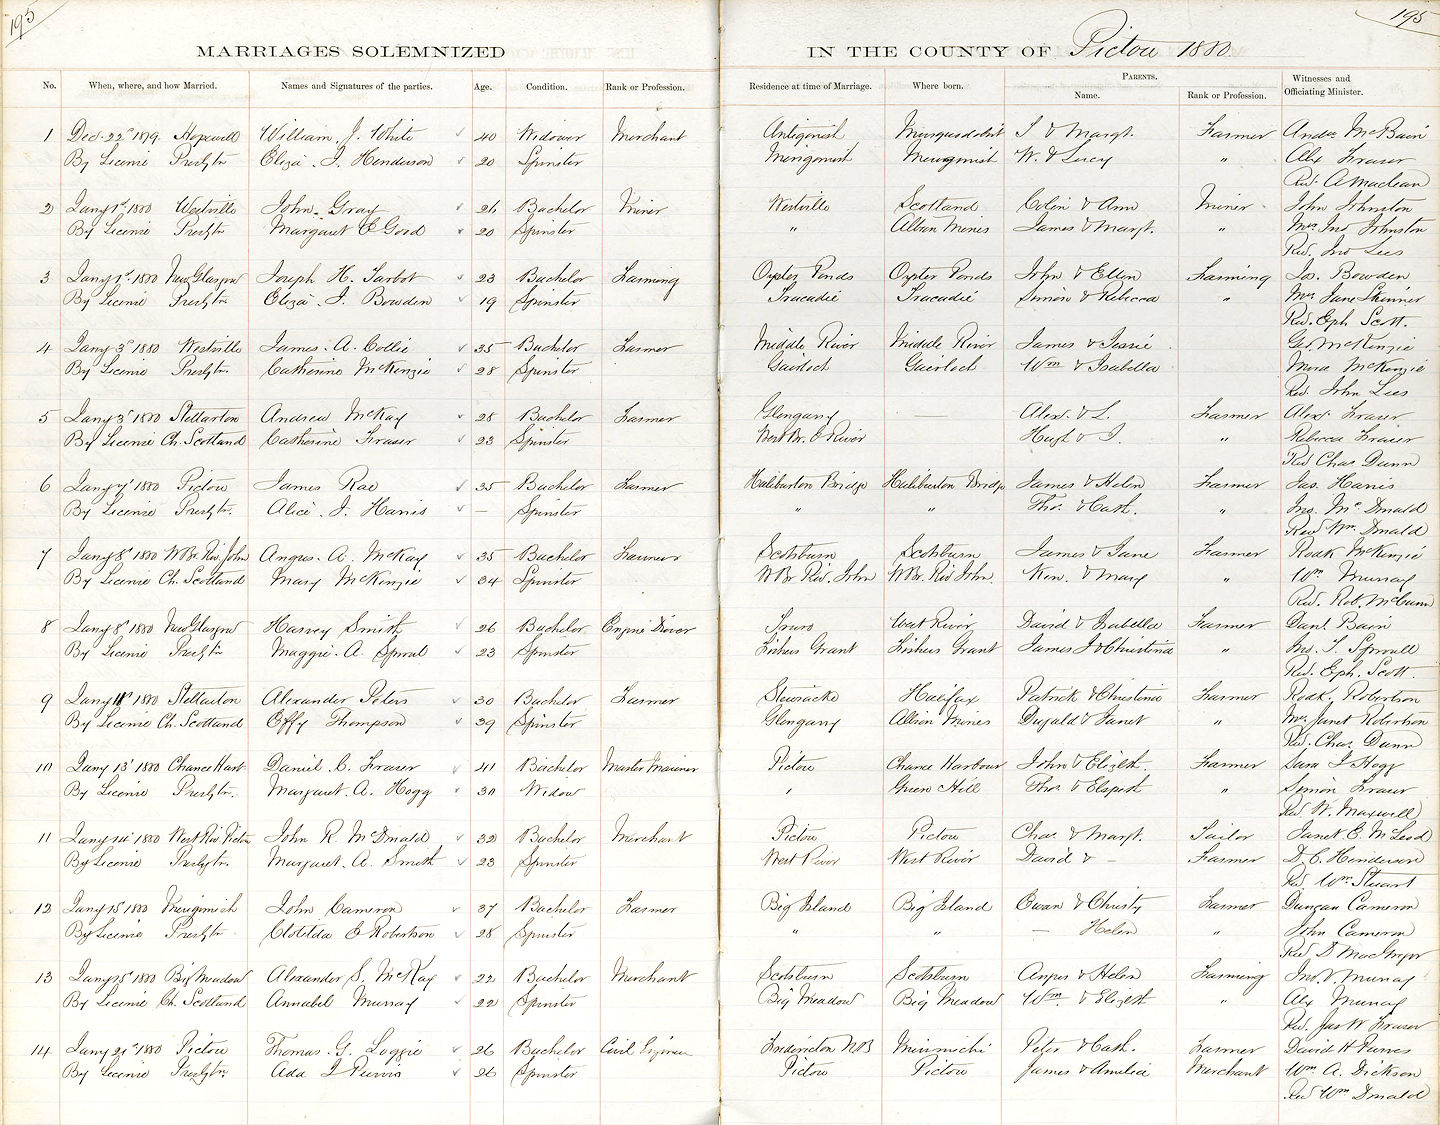 195
195
MARRIAGES SOLEMNIZED IN THE COUNTY OF Pictou 1880.
No. When, where, and how Married. Names and Signatures of the parties. Age. Condition. Rank or Profession. Residence at time of Marriage. Where born. PARENTS. Name. Rank or Profession. Witnesses and Officiating Minister.
1 Dec. 22d 1879. Hopewell William J. White 40 Widower Merchant Antigonish S & Margt. Farmer Andw McBain
By License Presbytn Eliza J. Henderson 20 Spinster Merigomish Merigomish W. & Lucy " Alex Fraser
Rev. A Maclean
2 Jany 1st 1880 Westville John Gray 26 Bachelor Miner Westville Scotland Colin & Ann Miner John Johnston
By License Presbytn Margaret E Gord 20 Spinster " Albion Mines James & Margt. " Mrs Jno Johnston
Rev. Jno Lees
3 Jany 1st 1880 New Glasgow Joseph H. Tarbot 23 Bachelor Farming Oyster Ponds Oyster Ponds John & Ellen Farming Jos. Bowden
By License Presbytn Eliza J. Bowden 19 Spinster Tracadie Tracadie Simon & Rebecca " Mrs Jane Skinner
Rev. Eph Scott.
4 Jany 3d 1880 Westville James A. Collie 35 Bachelor Farmer Middle River Middle River James & Jessie Geo. McKenzie
By License Presbytn. Catherine McKenzie 28 Spinster Gairloch Gairloch Wm & Isabella McKenzie
Rev. John Lees
5 Jany 3d 1880 Stellarton Andrew McKay 28 Bachelor Farmer Glengarry — Alex. & L. Farmer Alexr. Fraser
By License Ch. Scotland Catherine Fraser 23 Spinster West Br. E River Hugh & J. " Rebecca Fraser
Rev Chas Dunn
6 Jany 7th 1880 Pictou James Rae 35 Bachelor Farmer Haliburton Bridge Haliburton Bridge James & Helen Farmer Jas. Harris
By License Presbytn. Alice J. Harris — Spinster " " Thos. & Cath. " Jno. McDonald
Rev Wm. Donald
7 Jany 8th 1880 W Br. Riv. John Angus A. McKay 35 Bachelor Farmer Scotsburn Scotsburn James & Jane Farmer Rodk McKenzie
By License Ch. Scotland Mary McKenzie 34 Spinster W Br Riv. John W Br. Riv John Ken. & Mary " Wm Murray
Rev. Rob. McCunn
8 Jany 8th 1880 New Glasgow Harvey Smith 26 Bachelor Engine Driver Truro West River David & Isabella Farmer Danl. Bain
By License Presbytn Maggie A. Sproul 23 Spinster Fishers Grant Fishers Grant James J & Christina " Jno. T. Sproull
Rev. Eph. Scott.
9 Jany 1880 Stellarton Alexander Peters 30 Bachelor Farmer Stewiacke Halifax Patrick & Christina Farmer Rodk. Robertson
By License Ch. Scotland Effy Thompson 39 Spinster Glengarry Albion Mines Dugald & Janet " Mrs Janet Robertson
Rev. Chas. Dunn
10 Jany 13th 1880 Chance Harb. Daniel C. Fraser 41 Bachelor Master Mariner Pictou Chance Harbour John & Elizth. Farmer J Hogg
By License Presbytn. Margaret A. Hogg 30 Widow " Green Hill Thos & Elspeth " Simon Fraser
Rev W. Maxwell
11 Jany 14th 1880 West Riv. Pictou John R. McDonald 32 Bachelor Merchant Pictou Pictou Chas. & Margt. Tailor Janet E. McLeod
By License Presbytn. Margaret A. Smith 23 Spinster West River West River David & — Farmer D. C. Henderson
Rev. Wm. Stewart
12 Jany 15th 1880 Merigomish John Cameron 37 Bachelor Farmer Big Island Big Island Ewan & Christy Farmer Duncan Cameron
By License Presbytn. Clotilda E Robertson 28 Spinster " " — Helen " John Cameron
Rev D MacGregor
13 Jany 15th 1880 Big Meadow Alexander S. McKay 22 Bachelor Merchant Scotsburn Scotsburn Angus & Helen Farming Jno. D. Murray
By License Ch. Scotland Annabel Murray 22 Spinster Big Meadow Big Meadow Wm. & Elizth " Alex Murray
Rev. Jas W Fraser
14 Jany 21st 1880 Pictou Thomas G. Loggie 26 Bachelor Civil Engineer Fredericton N.B Miramichi Peter & Cath. Farmer David H Purves
By License Presbytn Ada J Purvis 26 Spinster Pictou Pictou James & Amelia Merchant Wm. A. Dickson
Rev Wm Donald